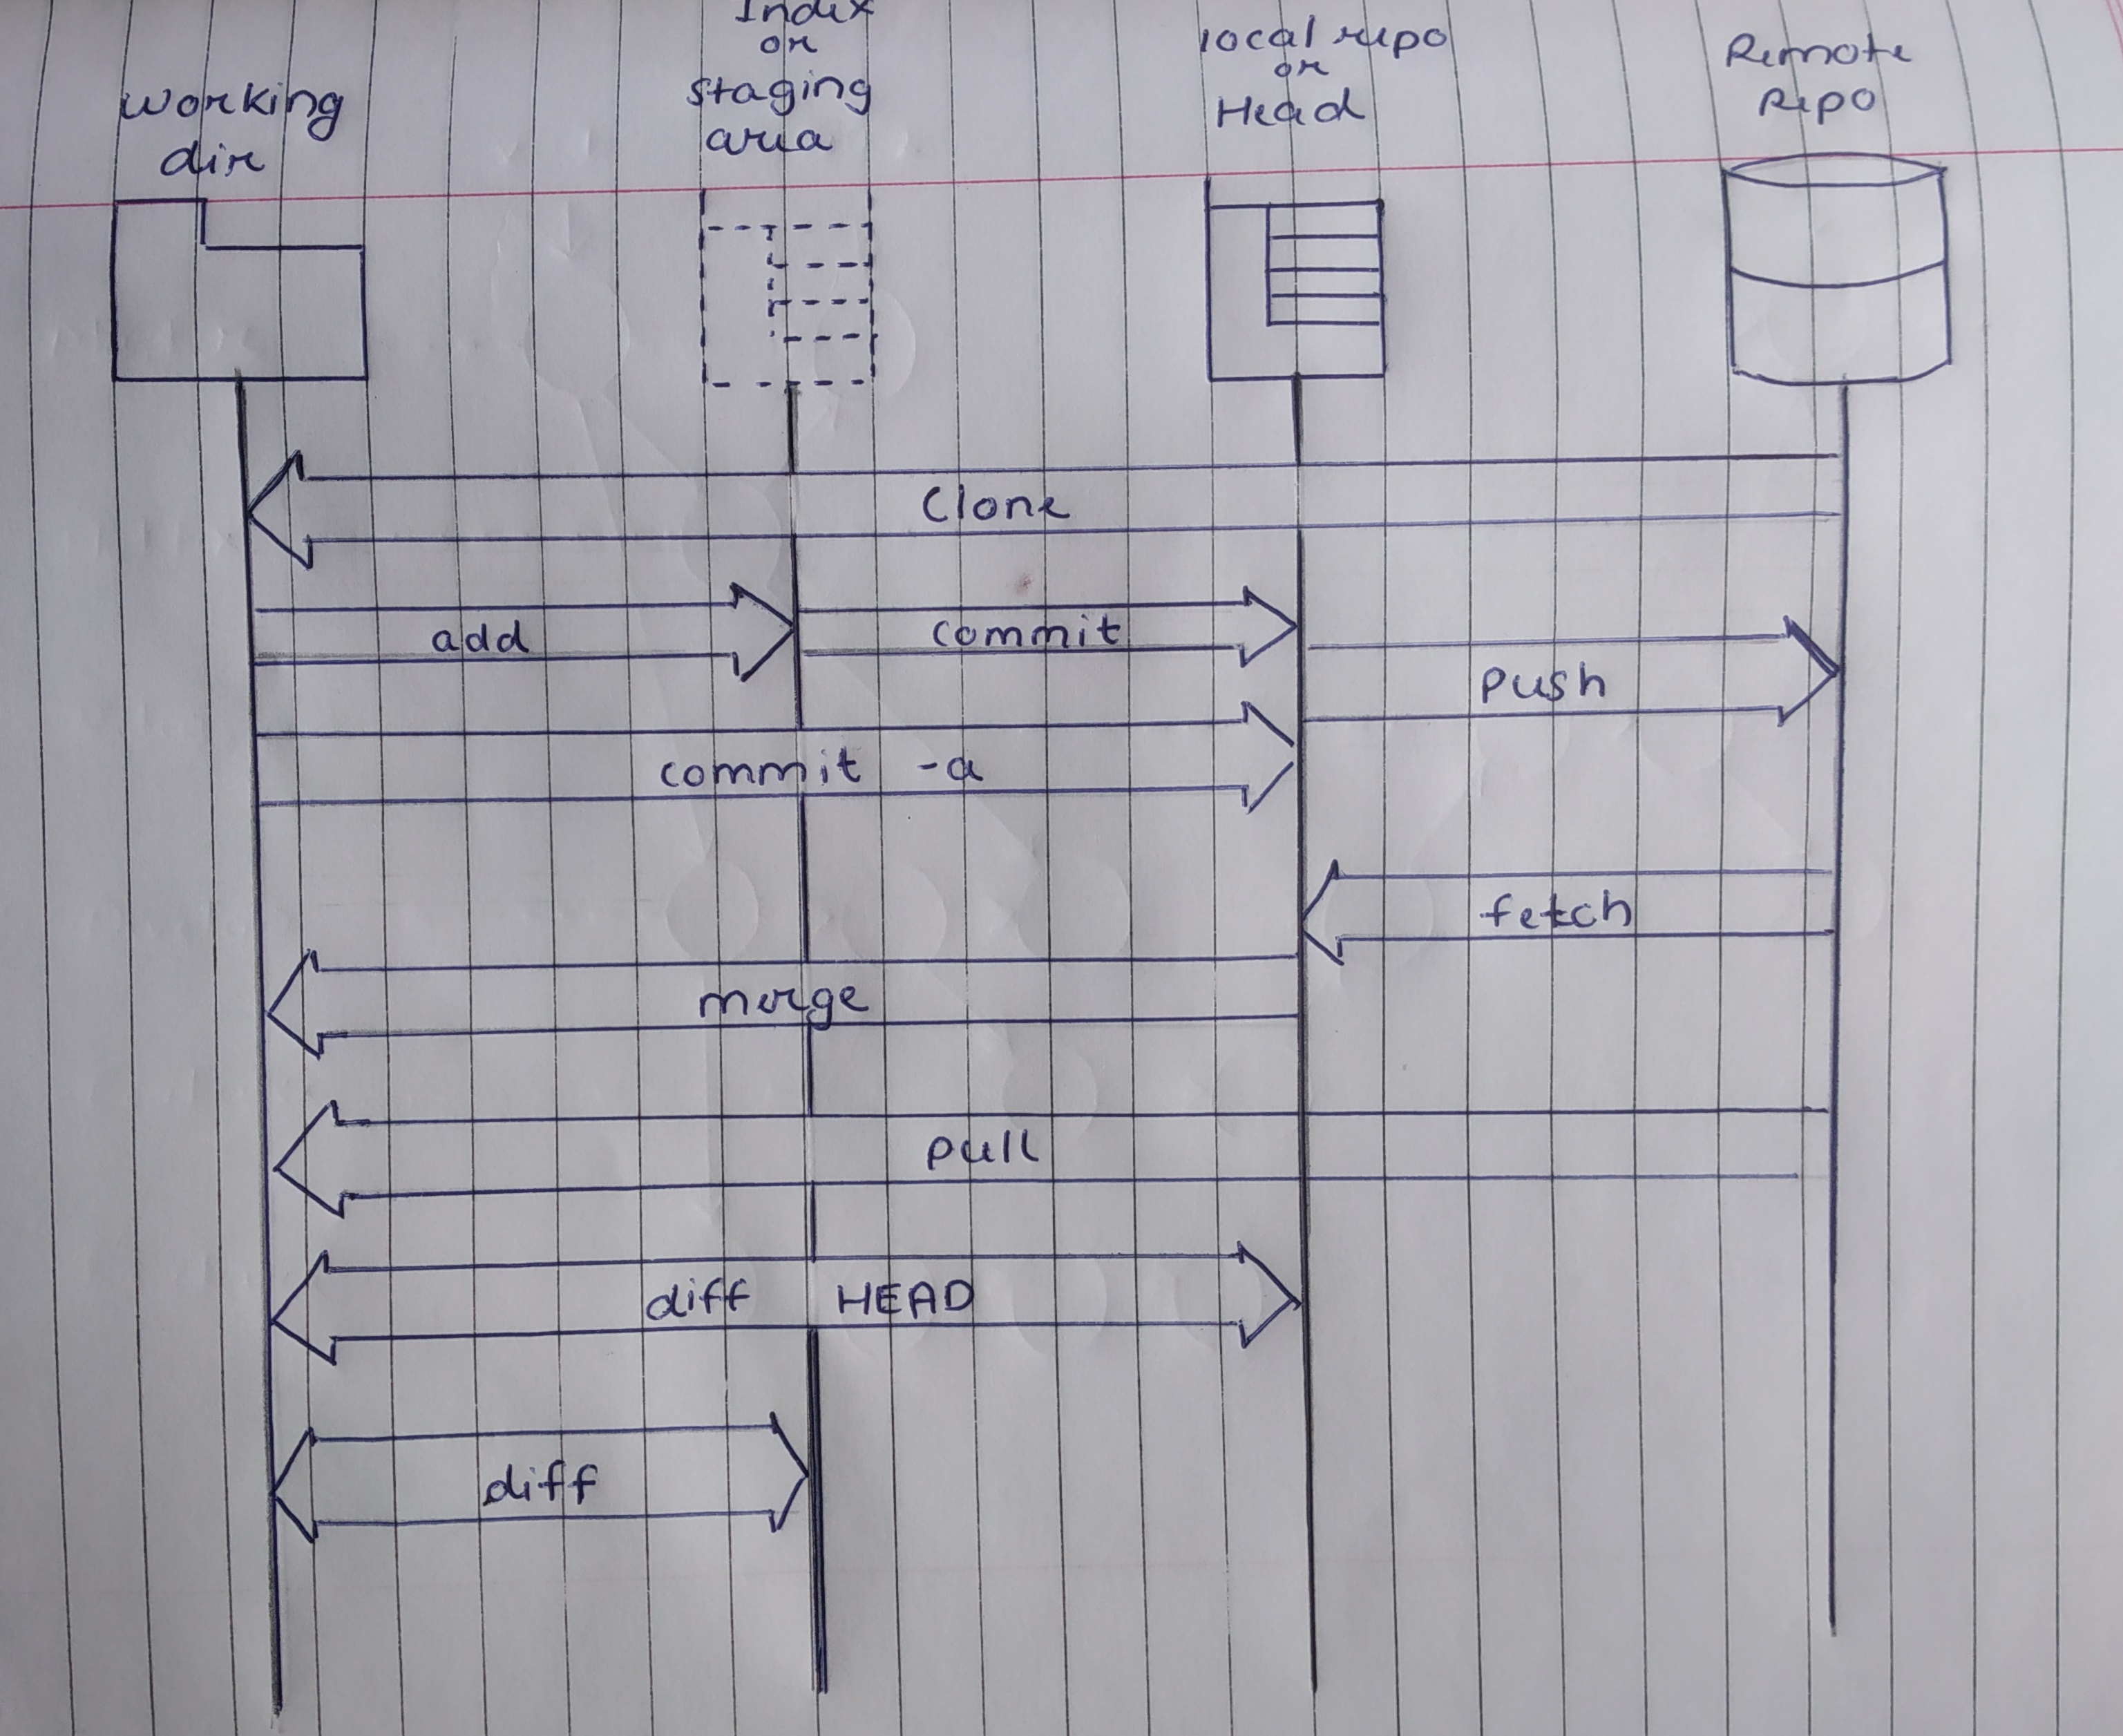 working
dir
Index
or
staging
area
local repo
or
Head
Remote
Repo
Clone
add
commit
push
commit -a
fetch
merge
pull
diff HEAD
diff